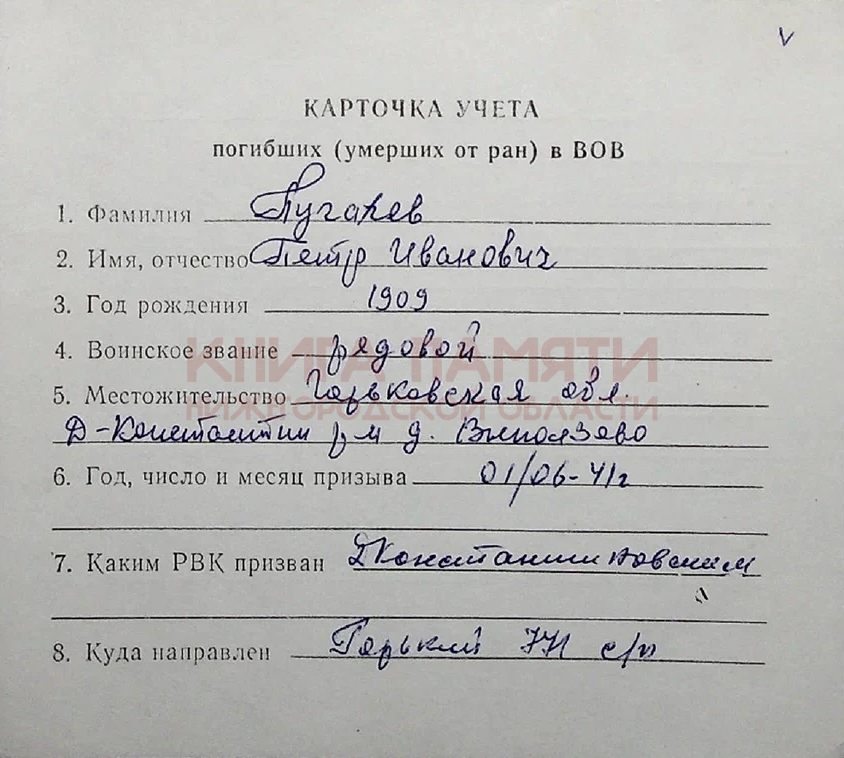 V
КАРТОЧКА УЧЕТА
погибших (умерших от ран) в ВОВ
1. Фамилия Пугачев
2. Имя, отчество Петр Иванович
3. Год рождения 1909
4. Воинское звание рядовой
КНИГА ПАМЯТИ
5. Местожительство Горьковская обл.
НИЖЕГОРОДСКОЙ ОБЛАСТИ
Д-Константин р-н д. Выползово
6. Год, число и месяц призыва 01/06-41г
7. Каким РВК призван ДКонстантиновским
8. Куда направлен Горький с/п